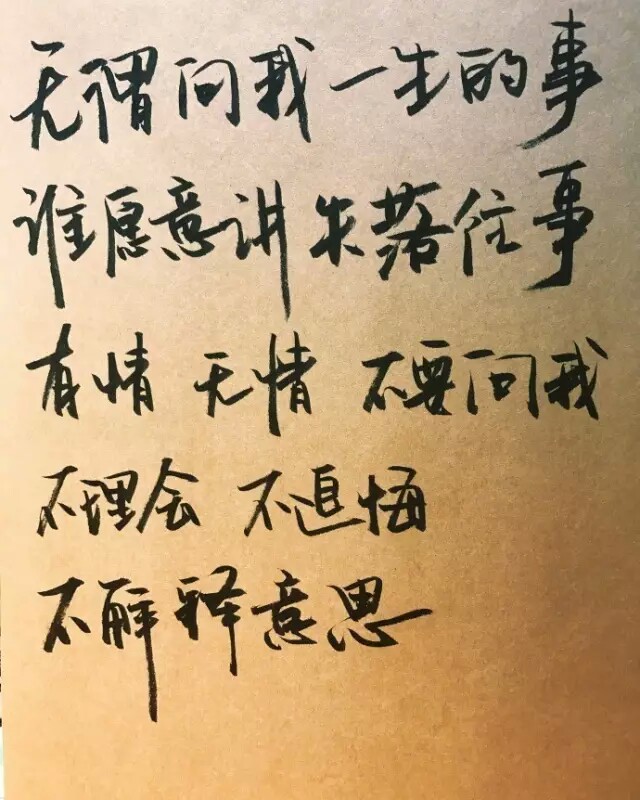 无谓问我一生的事
谁愿意讲失落往事
有情 无情 不要问我
不理会 不追悔
不解释意思